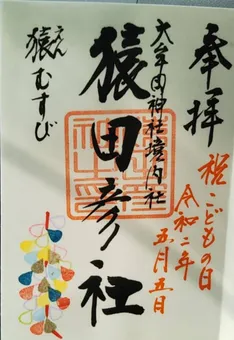 奉拝
祝こどもの日
令和二年
五月五日
大牟田神社境内社
猿田彦社
えん
猿むすび